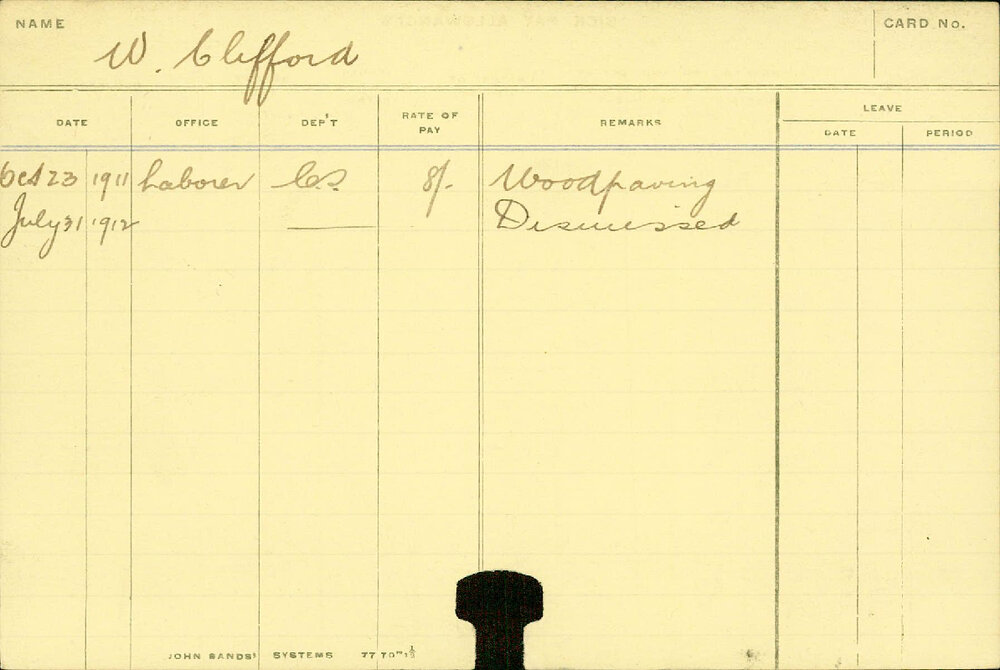 NAME
W. Clifford
CARD No.
DATE OFFICE DEP'T RATE OF PAY REMARKS LEAVE
DATE PERIOD
Oct 23 1911 Laborer C.S. 8/- Woodpaving
July 31 1912 Dismissed
JOHN SANDS' SYSTEMS